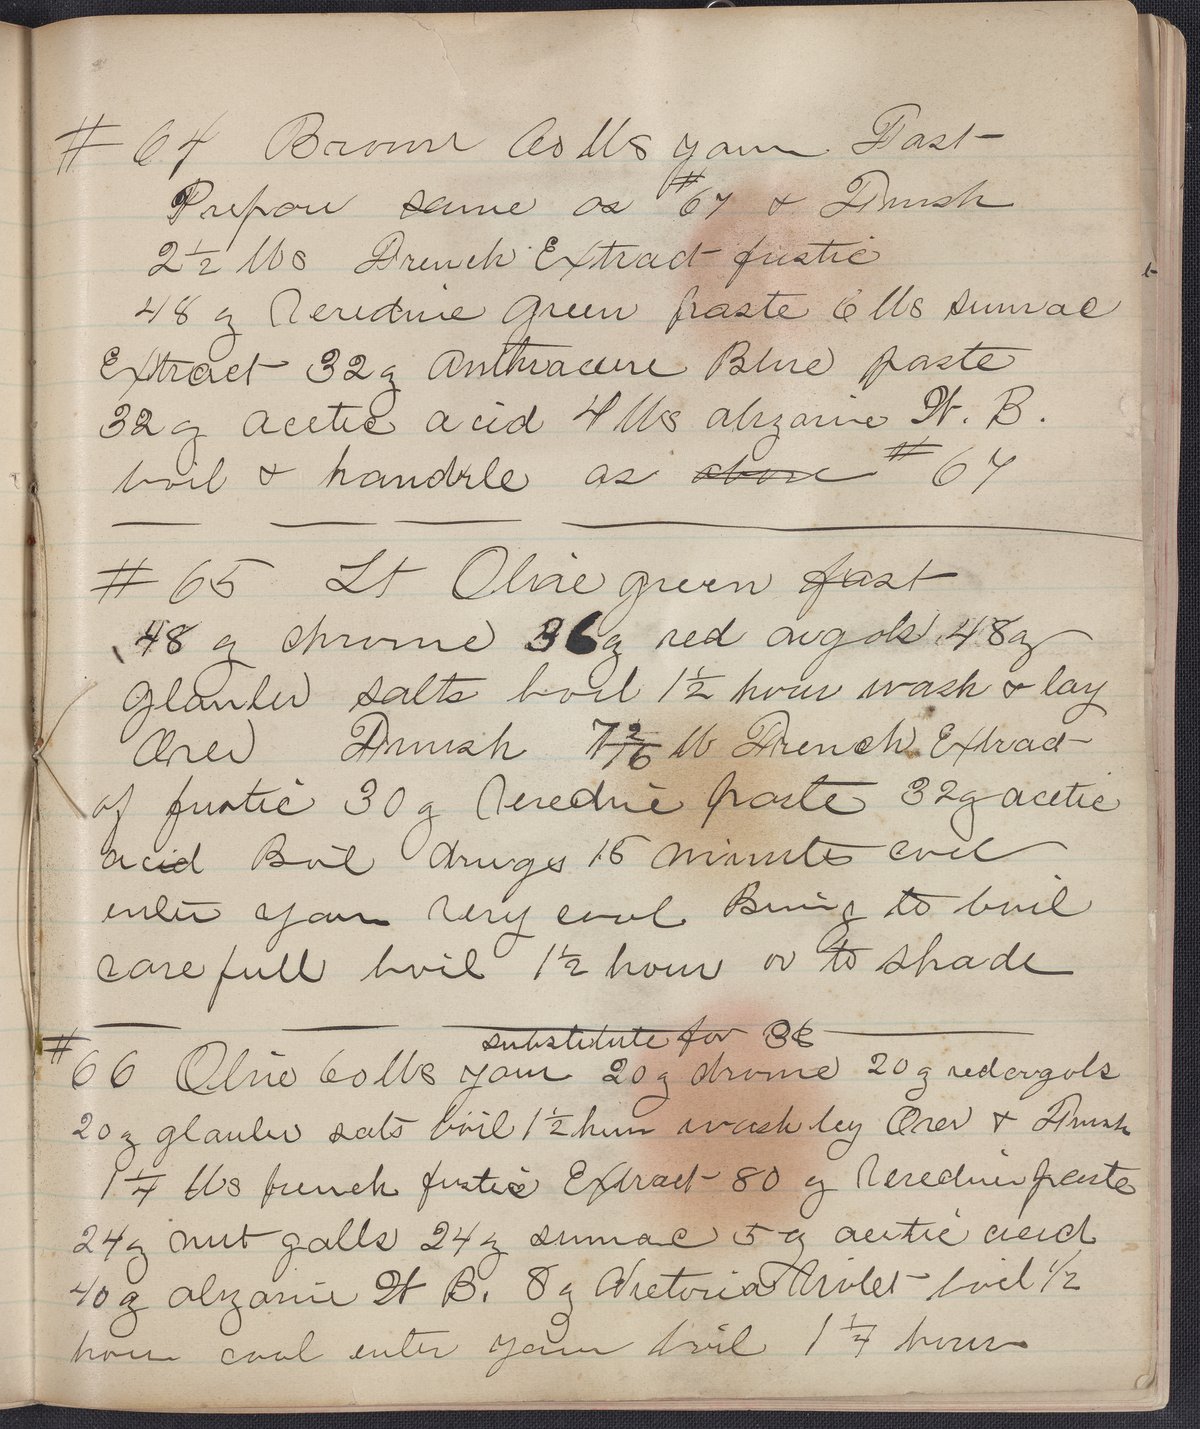 # 64 Brown 60 lbs yarn Fast
Prepare same as #67 & Finish
2 1/2 lbs French Extract fustic
48 g Ceredine green paste 6 lbs sumac
Extract 32 g anthracene Blue paste
32 g acetic acid 4 lbs alizarine W. B.
boil & handle as above # 67
# 65 Lt Olive green fast
48 g chrome 36 g red argols 48 g
glauber salts boil 1 1/2 hour wash & lay
Over Finish lb French Extract
of fustic 30 g Ceredine paste 32 g acetic
acid Boil drugs 15 minute cool
enter yarn very cool Bring to boil
carefull boil 1 1/2 hour or to shade
substitute for 36
#66 Olive 60 lbs yarn 20 g chrome 20 g red argols
20 g glauber sats boil 1 1/2 hour wash ley Over & Finish
1 1/4 lbs french fustic Extract 80 g Ceredine paste
24 g nut galls 24 g sumac 5 g acetic acid
40 g alizarine W B. 8 g Victoria Violet boil 1/2
hour cool enter yarn boil 1 1/4 hour